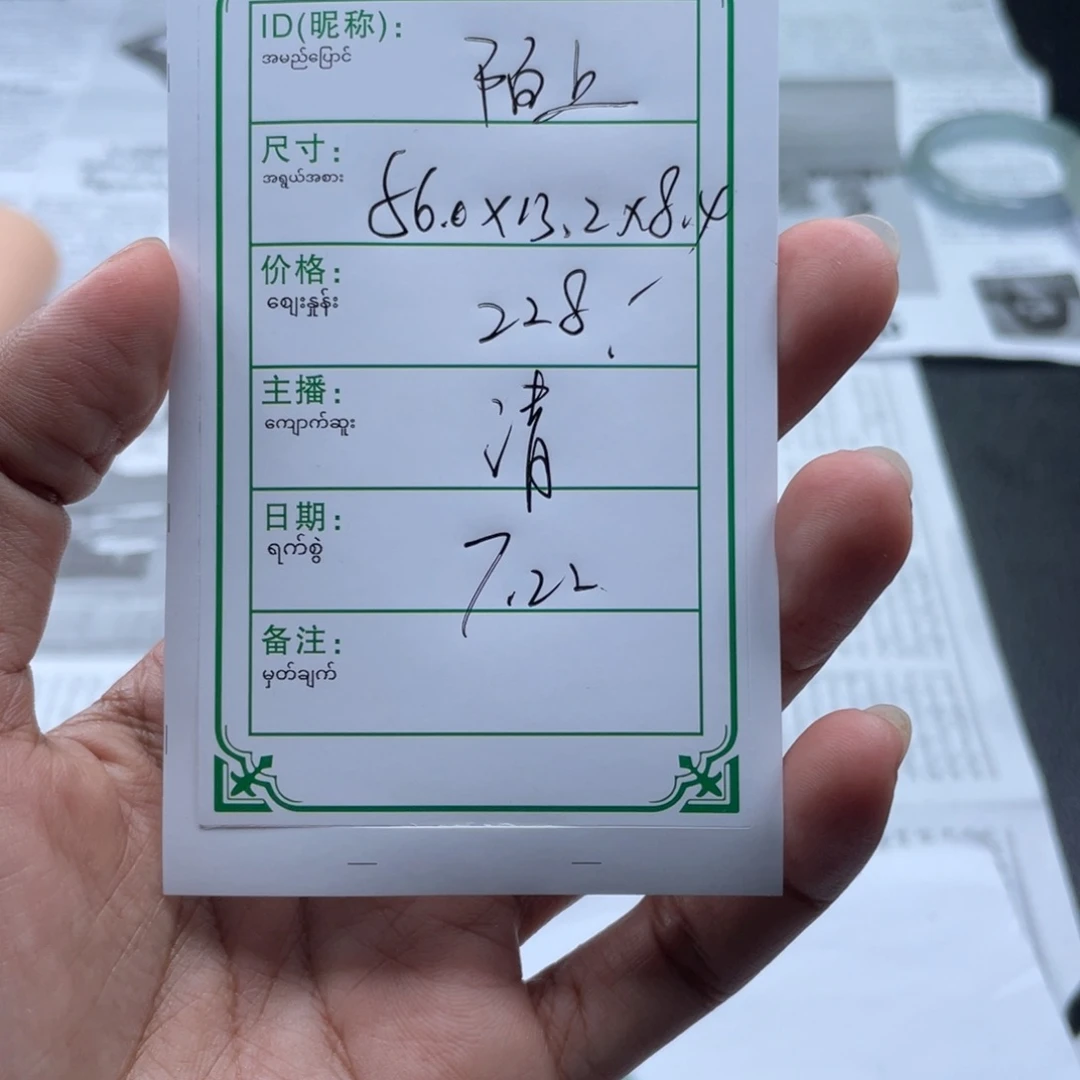 ID(昵称):
အမည်ပြောင်
陌上
尺寸:
အရွယ်အစား
56.0×13.2×8.4
价格:
ဈေးနှုန်း
228.
主播:
ကျောက်ဆူး
清
日期:
ရက်စွဲ
7.22
备注:
မှတ်ချက်